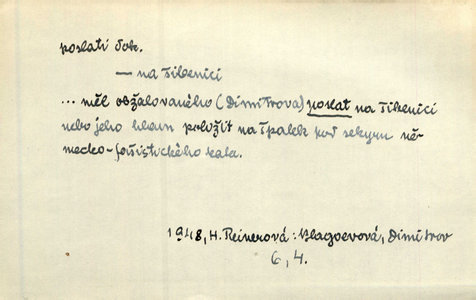 poslati dok.
— na šibenici
... měl obžalovaného (Dimitrova) poslat na šibenici
nebo jeho hlavu položit na špalek pod sekyru ně-
mecko-fašistického kata.
1948, H. Reinerová: Blagoevová, Dimitrov
6, 4.